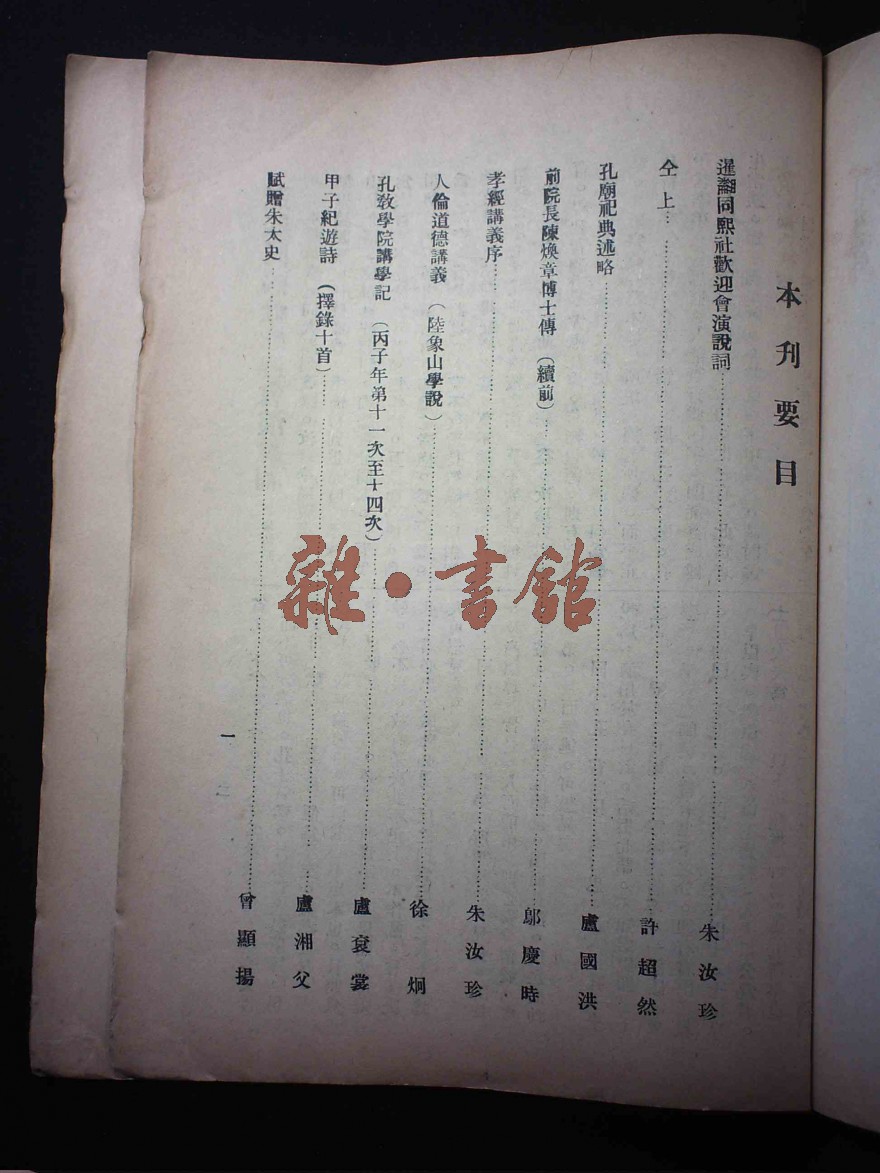 本刋要目
暹羅同熙社歡迎會演說詞 朱汝珍
仝上 許超然
孔廟祀典述略 盧國洪
前院長陳煥章博士傳（續前） 鄔慶時
孝經講義序 朱汝珍
人倫道德講義（陸象山學說） 徐炯
孔敎學院講學記（丙子年第十一次至十四次） 盧袞裳
甲子紀遊詩（擇錄十首） 盧湘父
賦贈朱太史 曾顯揚
一
雜·書館